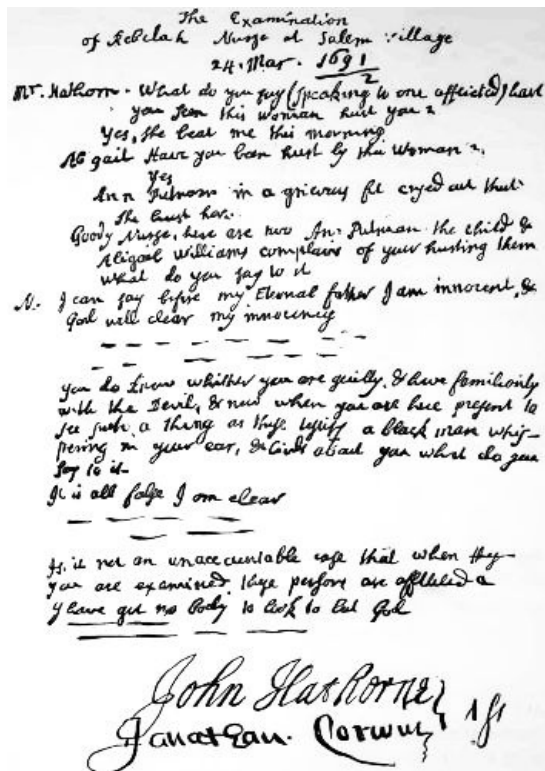 The Examination
of Rebekah Nurse at Salem Village
24. Mar. 1691/2
Mr. Hathorn. What do you say (speaking to one afflicted) have
you seen this woman hurt you?
Yes, she beat me this morning
Abigail Have you been hurt by this woman?
Yes
Ann Putnam in a grievous fit cryed out that
she hurt her.
Goody Nurse, here are two An: Putnam the child &
Abigail Williams complains of your hurting them
What do you say to it
N. I can say before my Eternal father I am innocent, &
God will clear my innocency
You do know whither you are guilty, & have familiarity
with the Devil, & now when you are here present to
see such a thing as these testify a black man whis-
pering in your ear, & birds about you what do you
say to it
It is all false I am clear
Is it not an unaccountable case that when
you are examined these persons are afflicted
I have got no body to look to but God
John Hathorne
Jonathan. Corwin